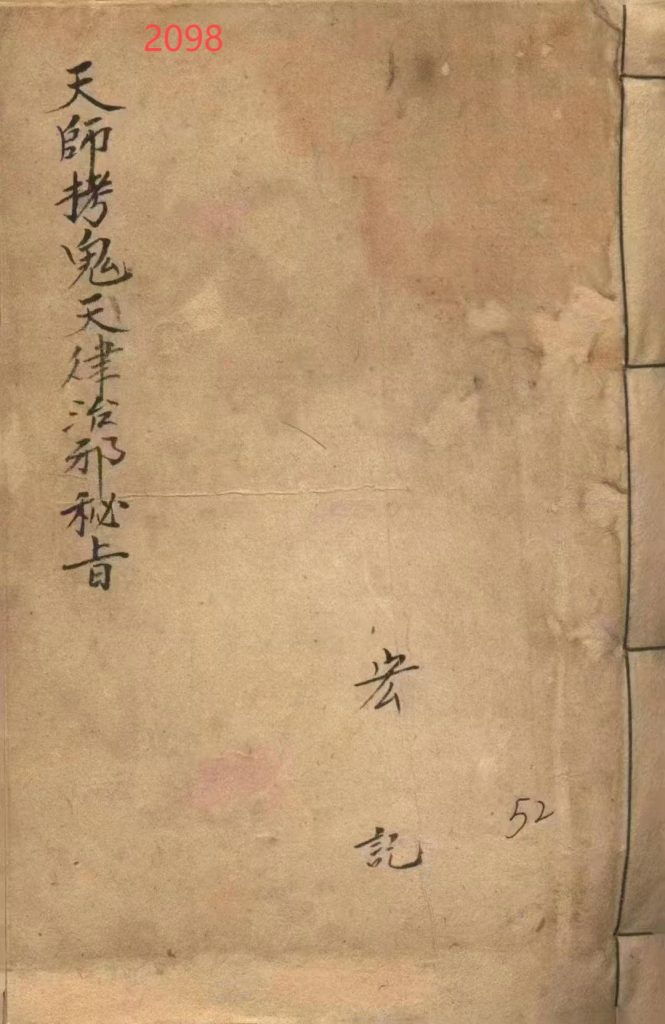 2098
天師拷鬼天律治邪秘旨
宏記
52